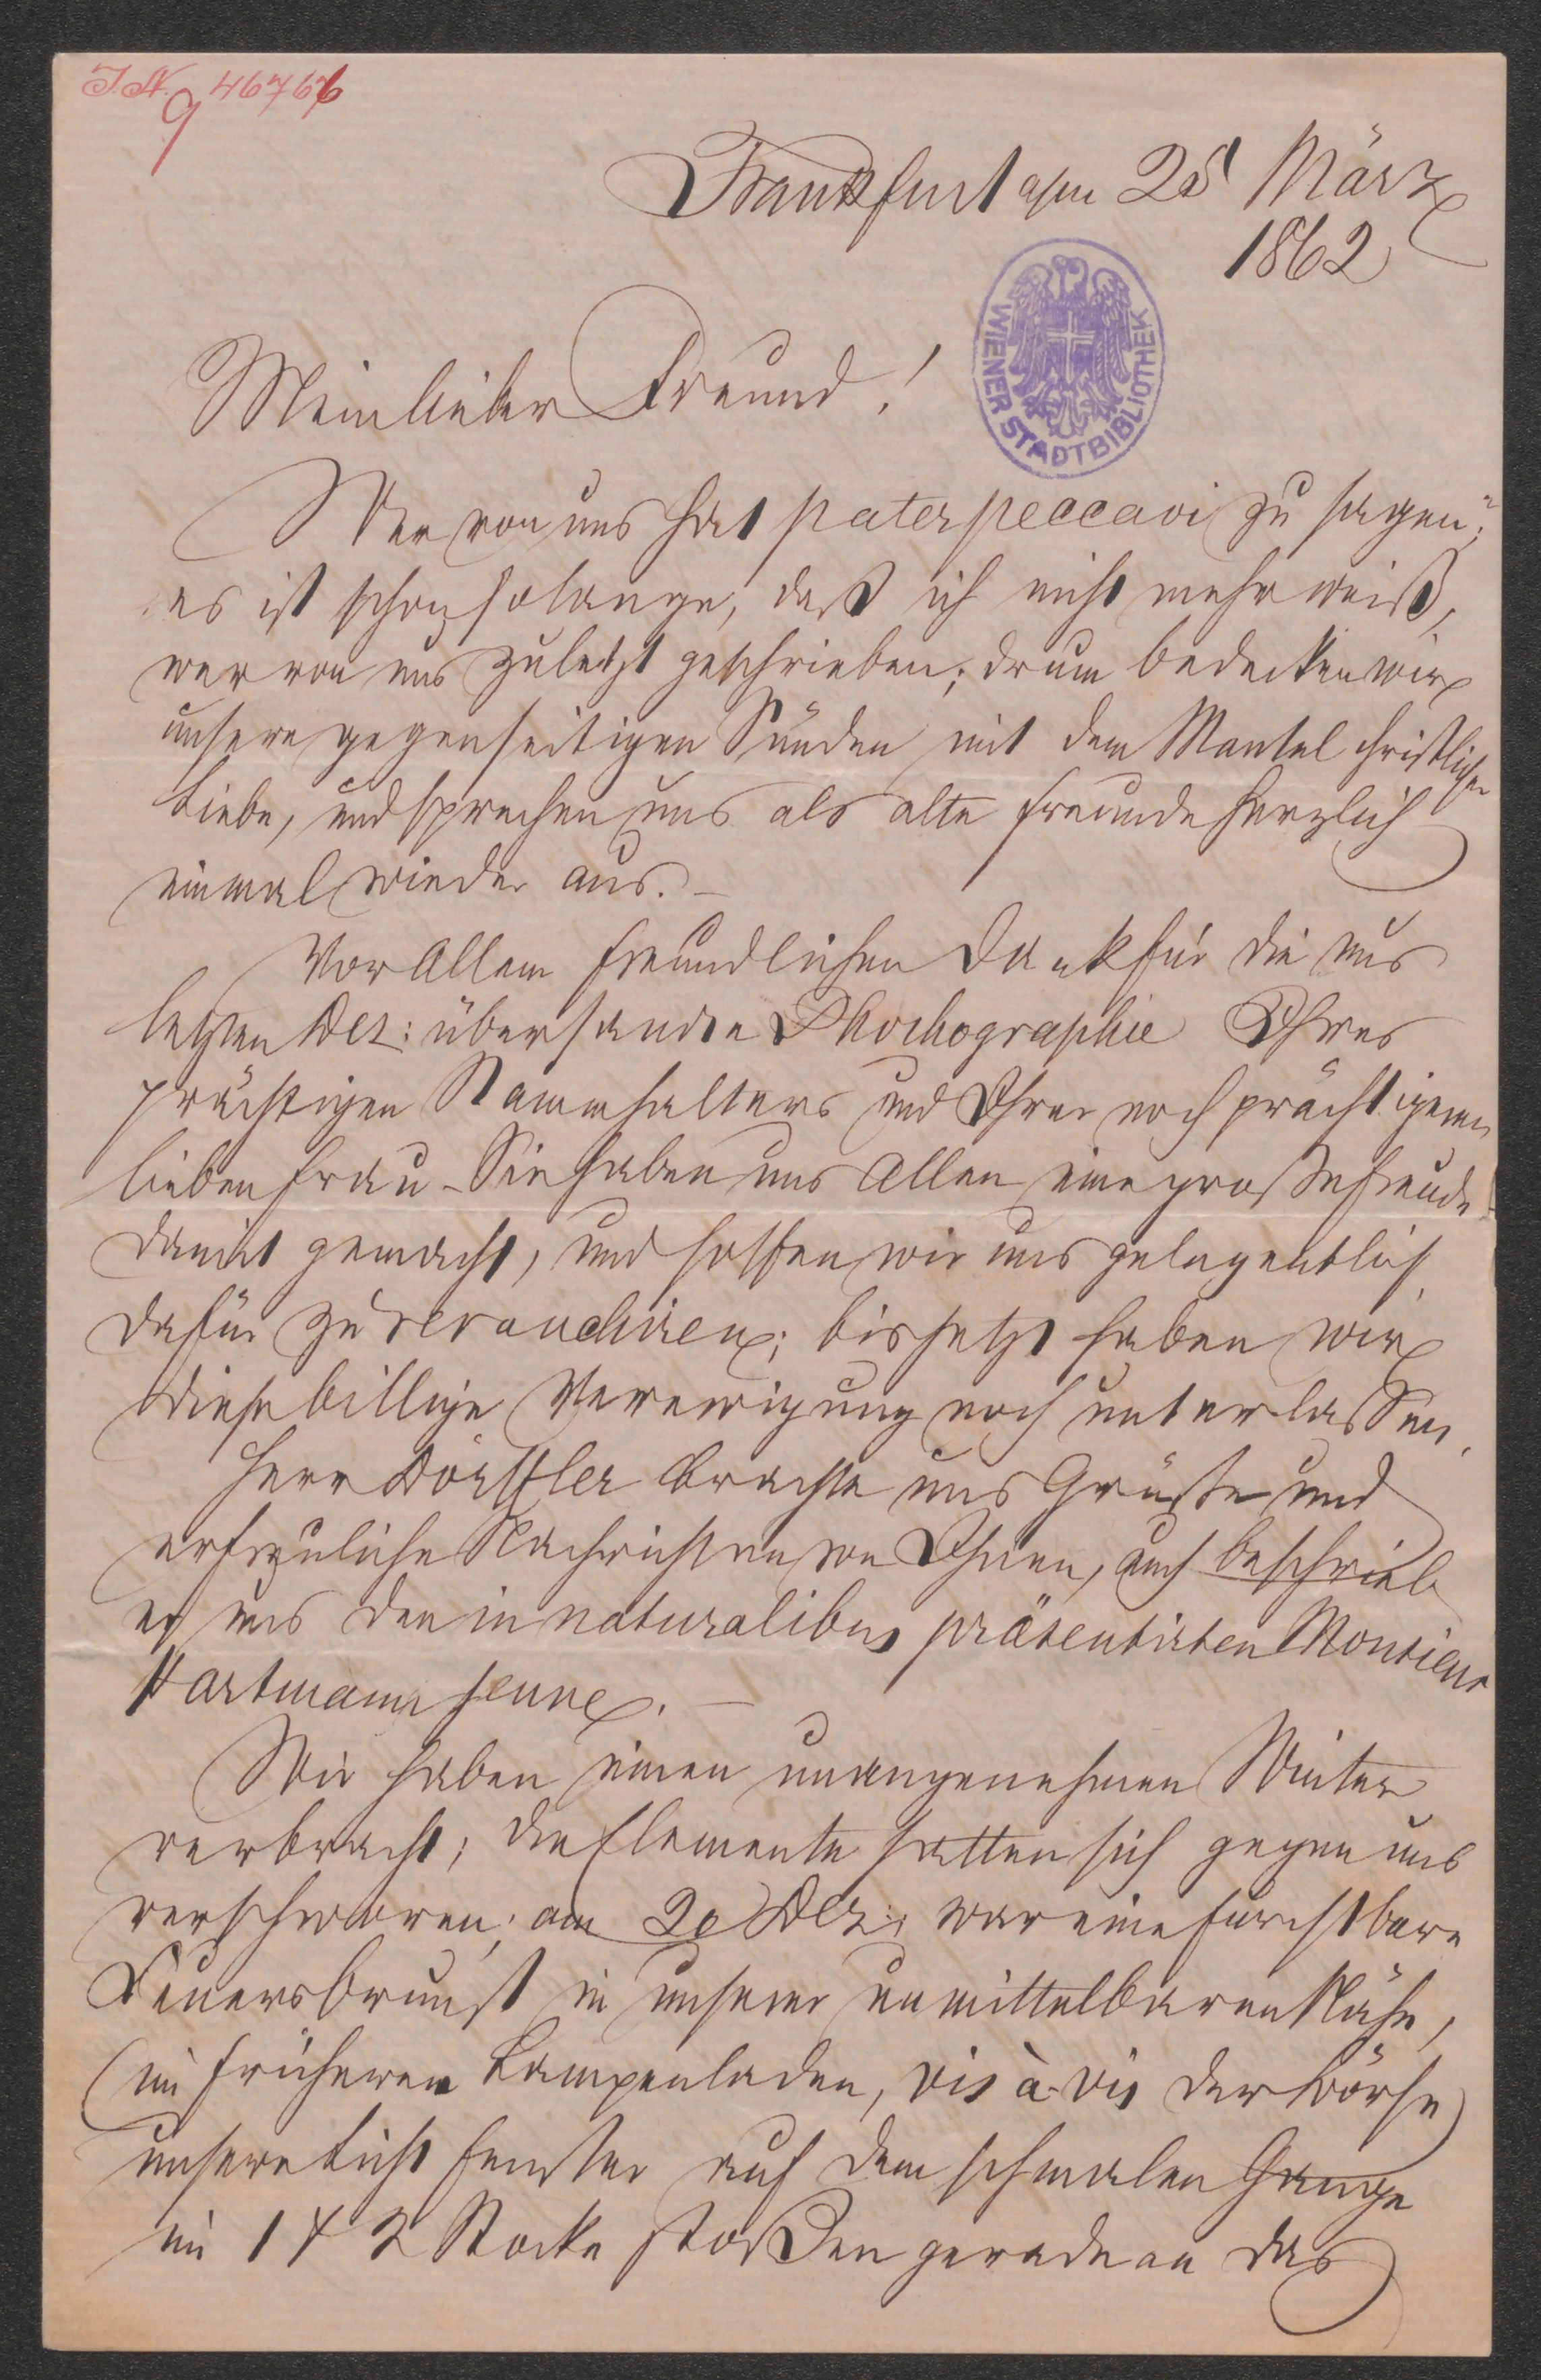 J.N. 46766
9
Frankfurt a/m 25 März
1862
WIENER STADTBIBLIOTHEK
Mein lieber Freund!
Wer von uns hat pater peccavi zu sagen;
es ist schon so lange, daß ich nicht mehr weiß,
wer von uns zuletzt geschrieben; drum bedecken wir
unsere gegenseitigen Sünden mit dem Mantel christlicher
Liebe, und sprechen uns als alte Freunde herzlich
einmal wieder aus. –
Vor Allem freundlichen Dank für die uns
letzten Dez: übersandte Photographie Ihres
prächtigen Stammhalters und Ihrer noch prächtigeren
lieben Frau – Sie haben uns Allen eine große Freude
damit gemacht, und hoffen wir uns gelegentlich
dafür zu revanchiren; bis jetzt haben wir
diese billige Verewigung noch unterlassen.
Herr Dörffler brachte uns Grüße und
erfreuliche Nachrichten von Ihnen, auch beschrieb
er uns den in naturalibus präsentirten Monsieur
Hartmann jeune. –
Wir haben einen unangenehmen Winter
verbracht; die Elemente hatten sich gegen uns
verschworen; am 20 Dez: war eine furchtbare
Feuersbrunst in unserer unmittelbaren Nähe,
(im früheren Lampenladen, vis à vis der Börse)
unsere Licht Fenster auf dem schmalen Gange
im 1 & 2 Stocke stoßen gerade an das